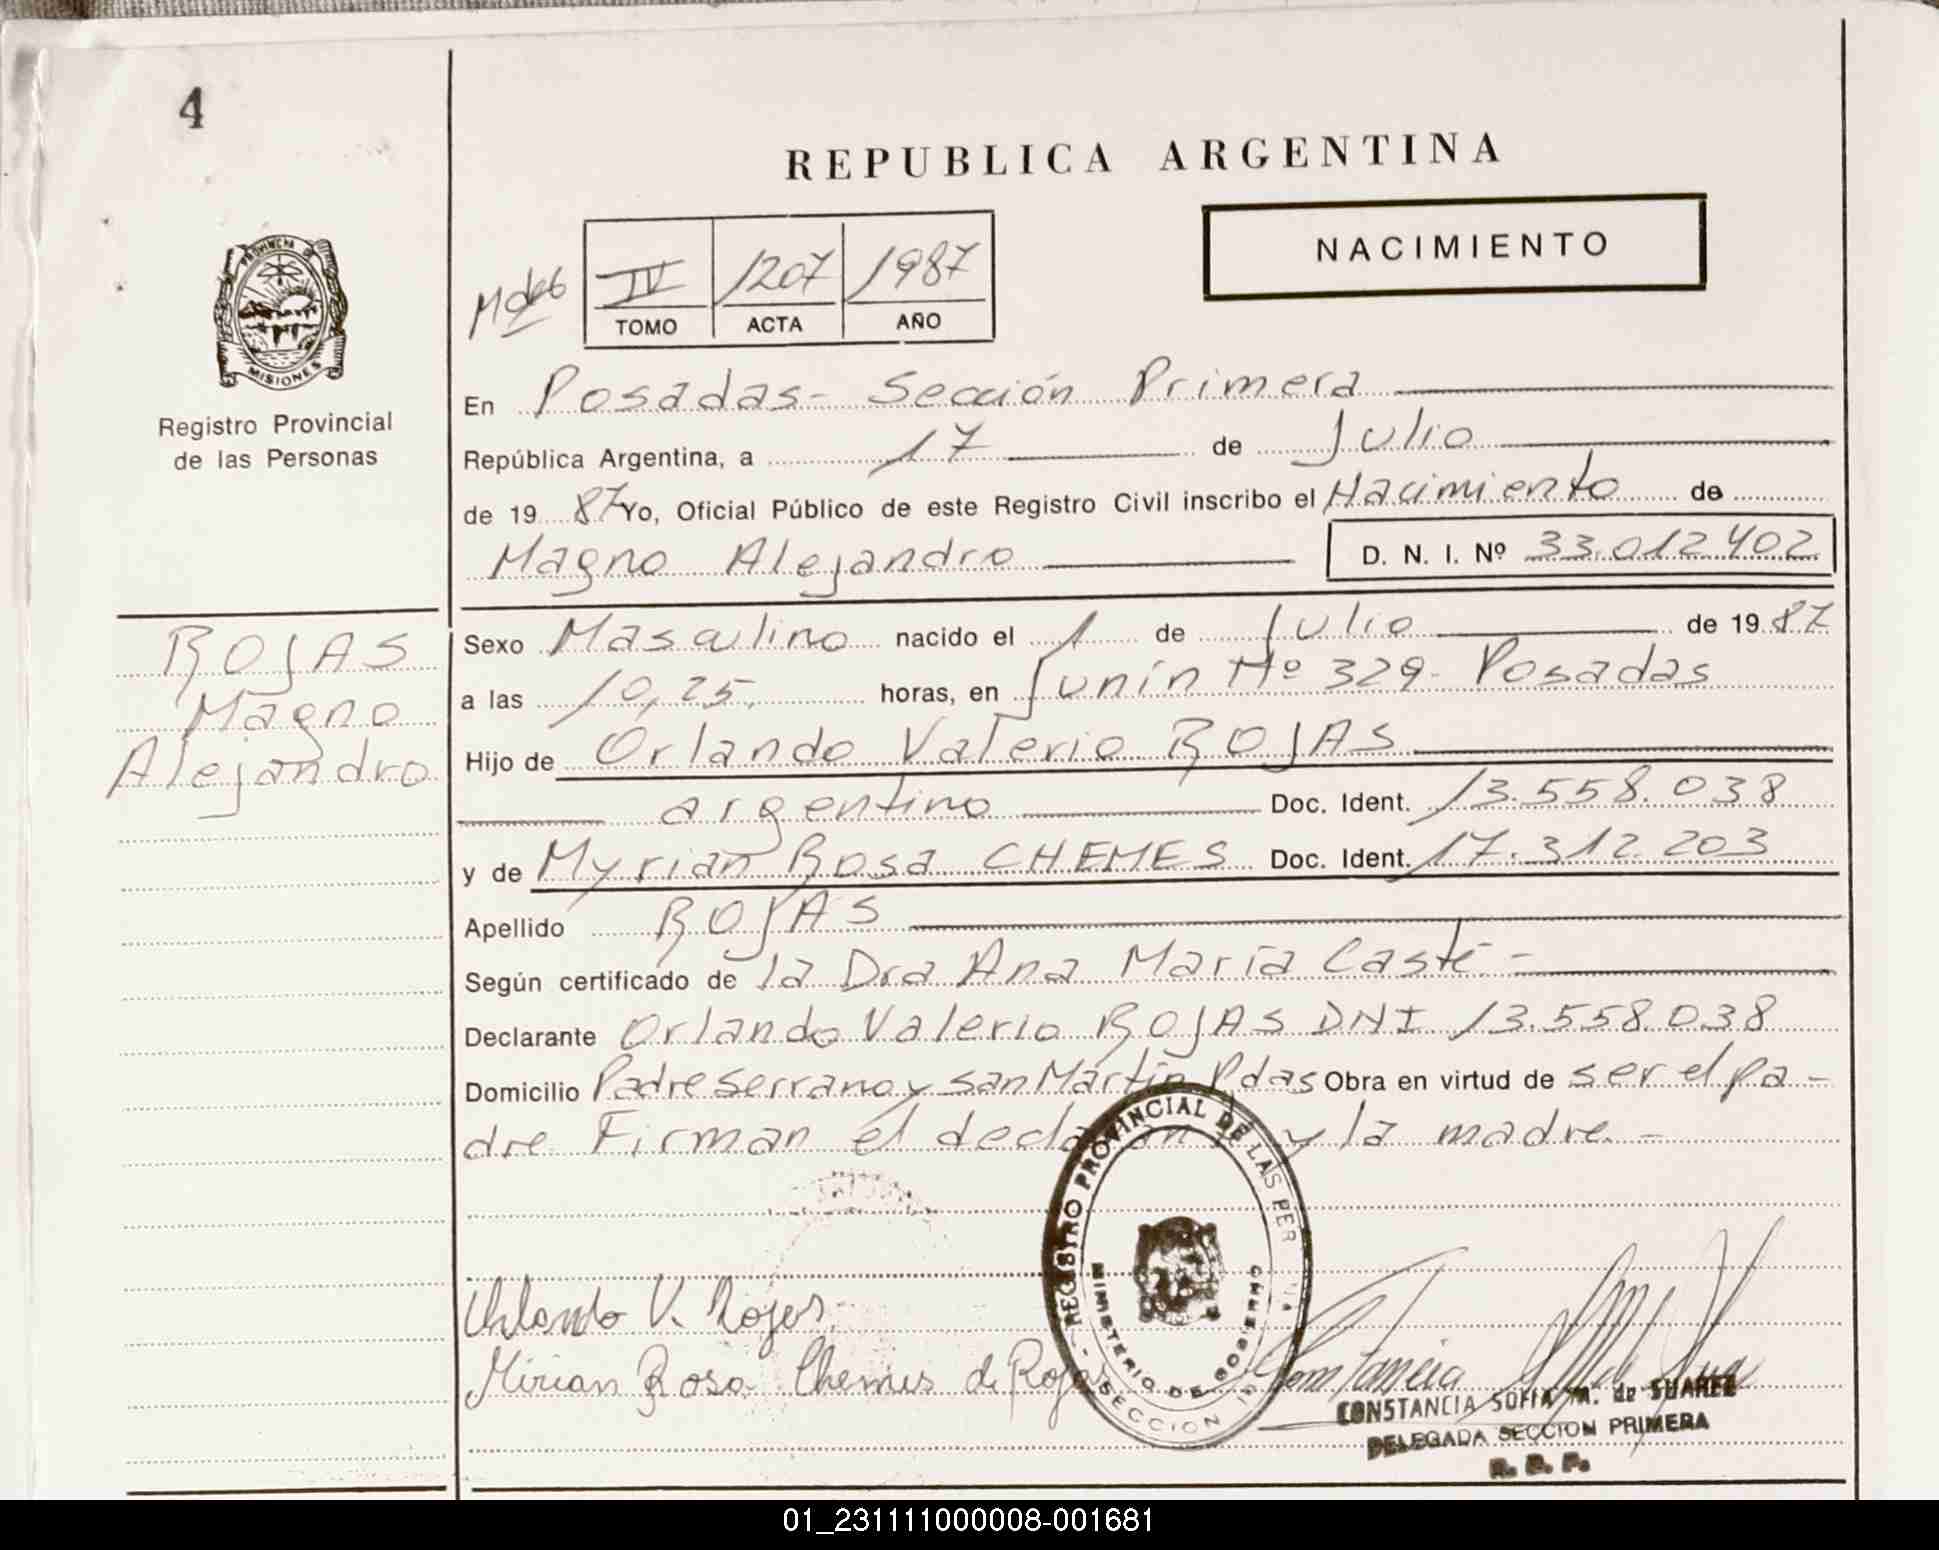 4
REPUBLICA ARGENTINA
NACIMIENTO
IV 1207 1987
TOMO ACTA AÑO
PROVINCIA DE
MISIONES
Registro Provincial
de las Personas
En Posadas - Sección Primera
República Argentina, a 17 de Julio
de 19 87 Yo, Oficial Público de este Registro Civil inscribo el Nacimiento de
Magno Alejandro D. N. I. Nº 33.012.402
ROJAS
Magno
Alejandro
Sexo Masculino nacido el 1 de Julio de 19 87
a las 10,25. horas, en Junín Nº 329 - Posadas
Hijo de Orlando Valerio ROJAS
argentino Doc. Ident. 13.558.038
y de Myrian Rosa CHEMES Doc. Ident. 17.312.203
Apellido ROJAS
Según certificado de la Dra Ana María Casté -
Declarante Orlando Valerio ROJAS DNI 13.558.038
Domicilio Padre Serrano y San Martín Pdas Obra en virtud de ser el pa-
dre. Firman el declarante y la madre. -
REGISTRO PROVINCIAL DE LAS PER
MINISTERIO DE GOBIERNO
SECCION 1ª
Orlando V. Rojas
Mirian Rosa Chemes de Rojas
Constancia
CONSTANCIA SOFIA M. de SUAREZ
DELEGADA SECCION PRIMERA
R. P. P.
01_231111000008-001681